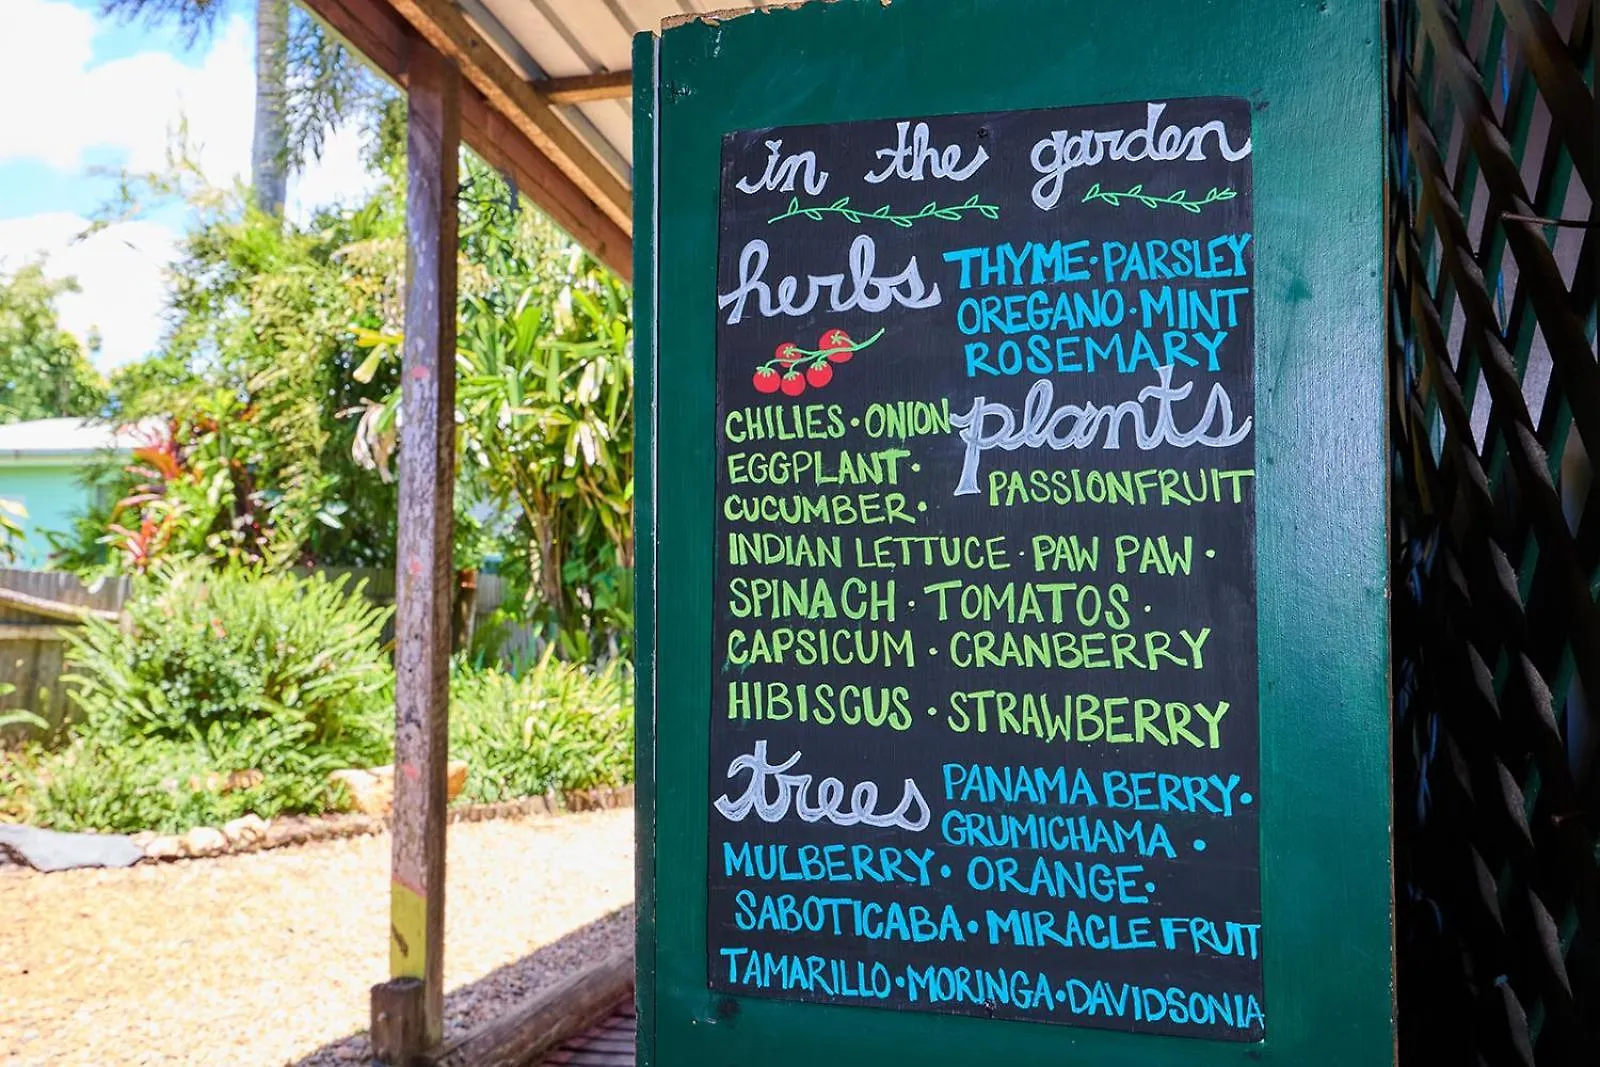 in the garden
herbs THYME·PARSLEY
OREGANO·MINT
ROSEMARY
plants
CHILIES·ONION
EGGPLANT·
PASSIONFRUIT
CUCUMBER·
INDIAN LETTUCE·PAW PAW·
SPINACH·TOMATOS·
CAPSICUM·CRANBERRY
HIBISCUS·STRAWBERRY
trees PANAMA BERRY·
GRUMICHAMA·
MULBERRY·ORANGE·
SABOTICABA·MIRACLE FRUIT
TAMARILLO·MORINGA·DAVIDSONIA